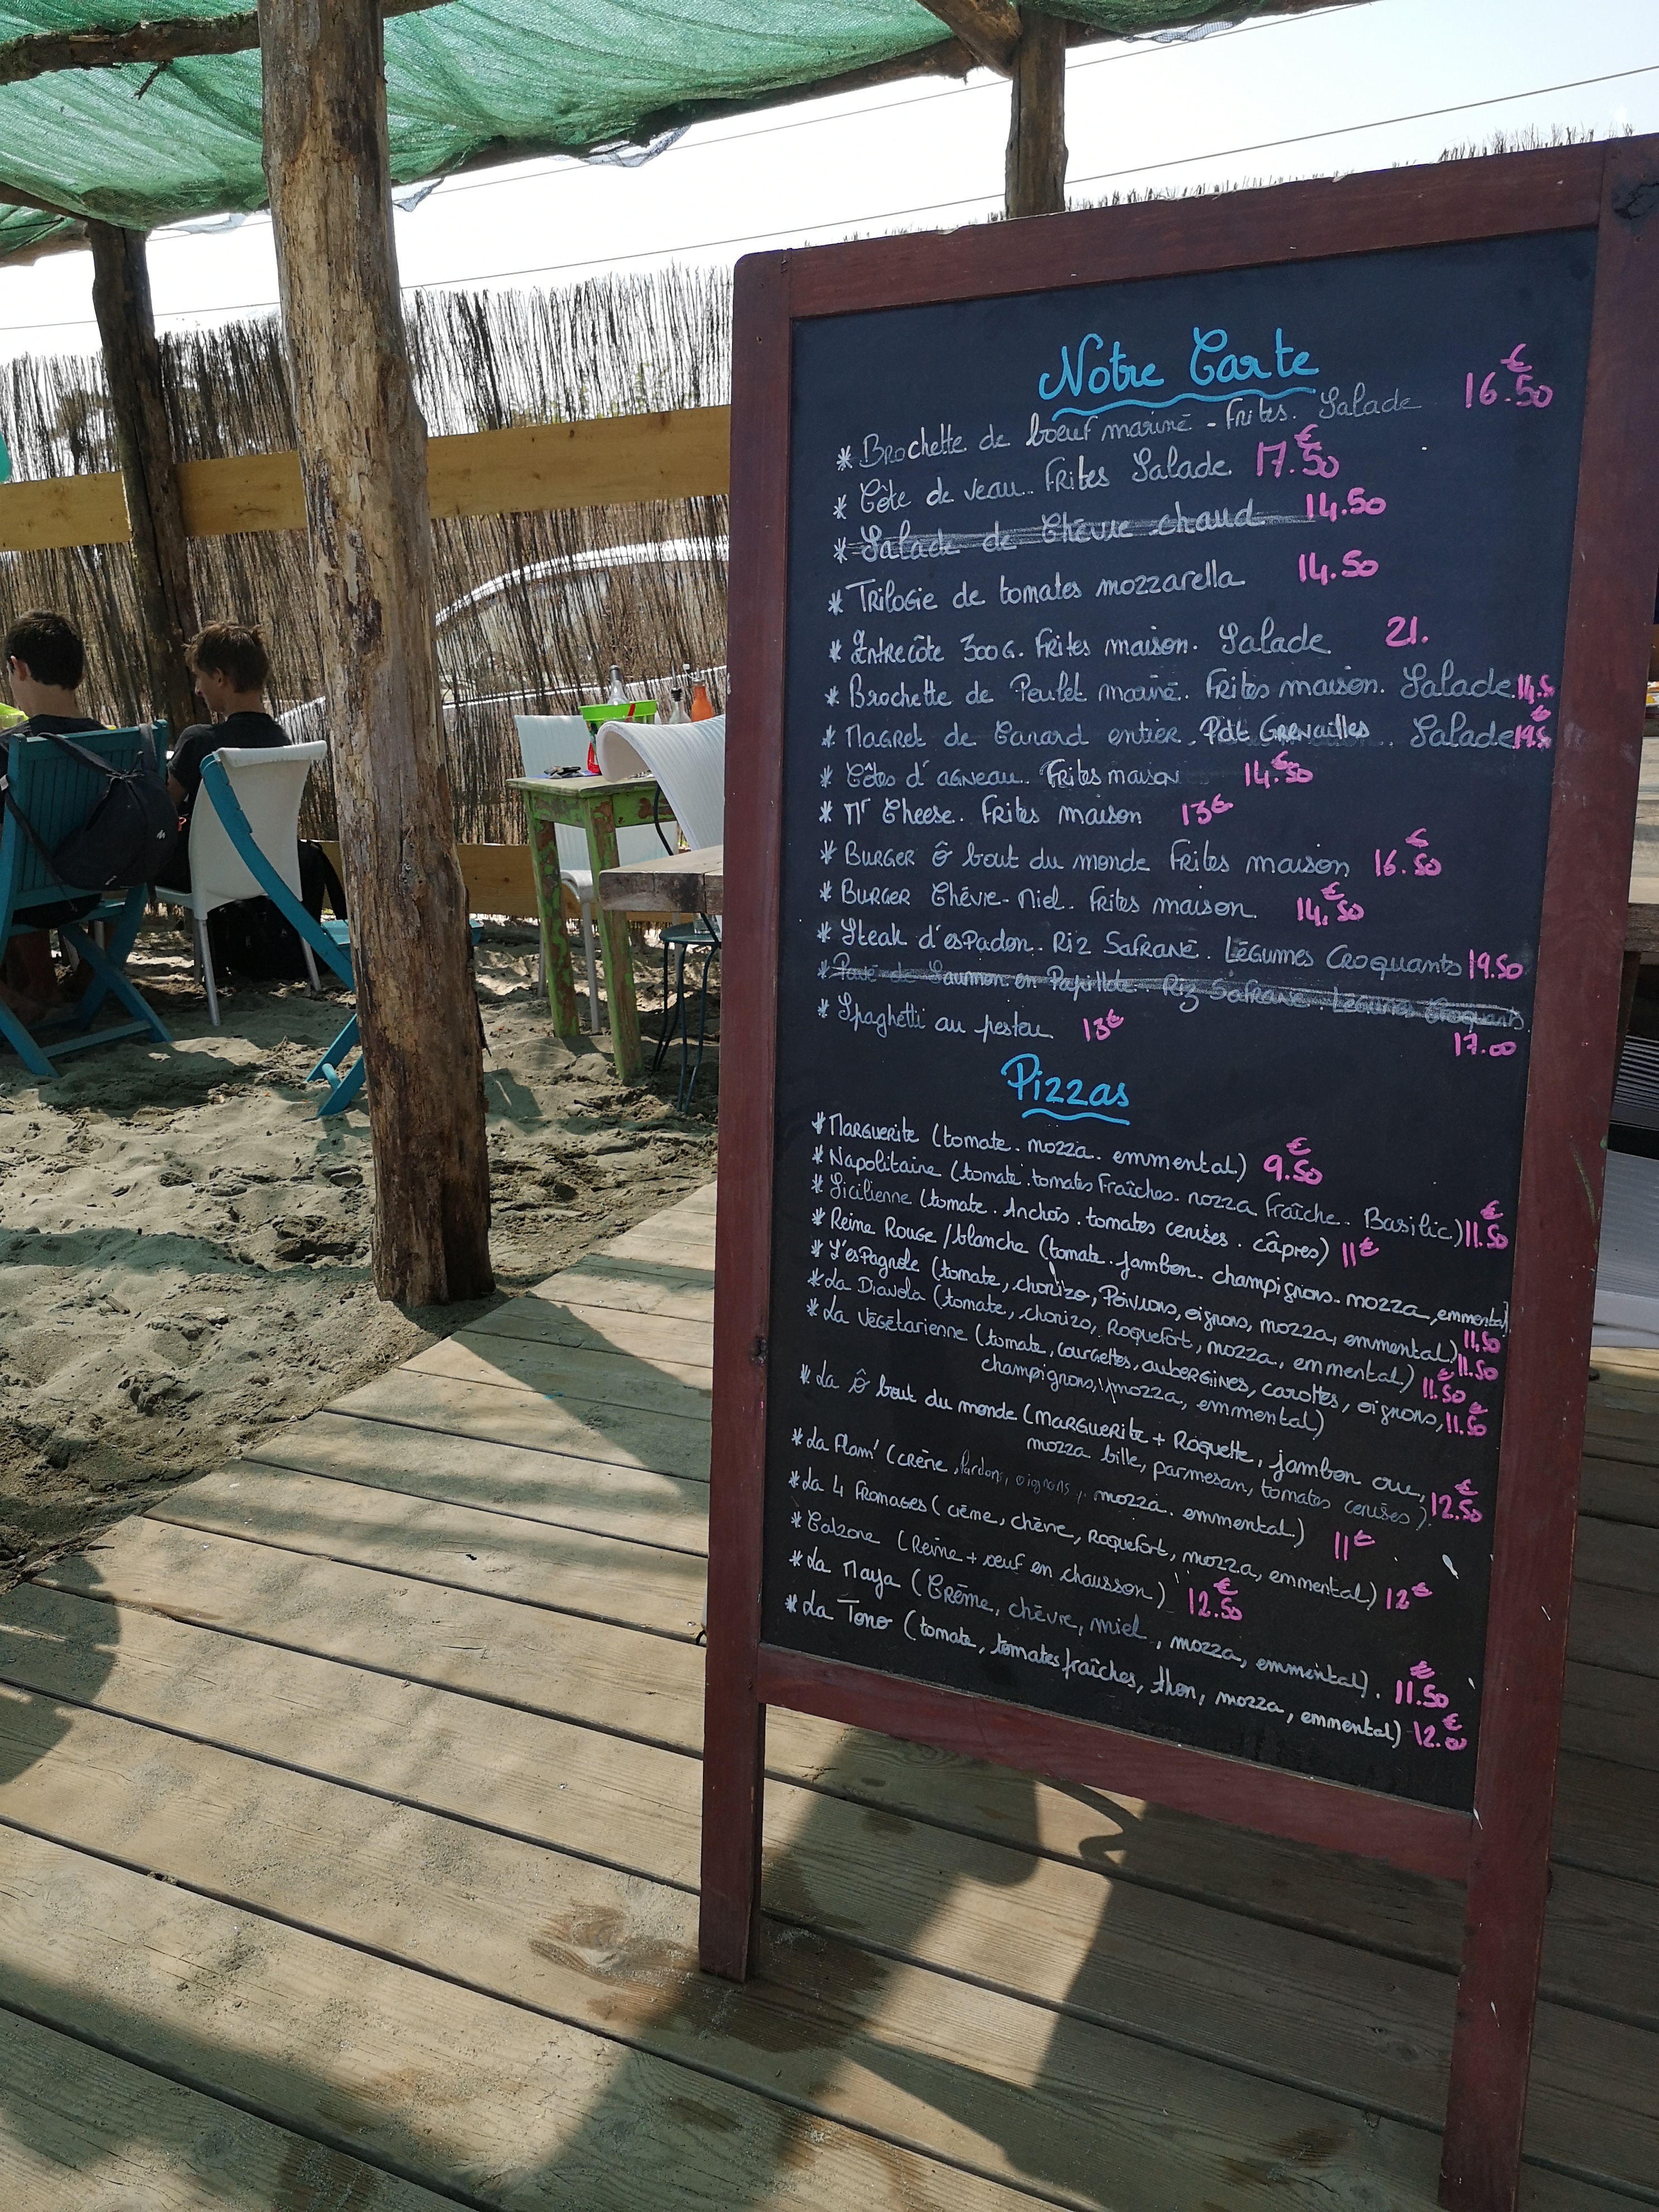 Notre Carte
* Brochette de boeuf mariné - Frites. Salade 16.50€
* Côte de veau.. Frites Salade 17.50€
* Salade de Chèvre chaud 14.50
* Trilogie de tomates mozzarella 14.50
* Entrecôte 300G. Frites maison. Salade 21.
* Brochette de Poulet mariné. Frites maison. Salade 14.5
* Magret de Canard entier. Pdt Grenailles Salade 19.5€
* Côtes d'agneau.. Frites maison 14.50€
* Mr Cheese. Frites maison 13€
* Burger Ô bout du monde Frites maison 16.50€
* Burger Chèvre-Miel. Frites maison 14.50€
* Steak d'esPadon. Riz Safrané. Légumes Croquants 19.50
* Pavé de Saumon en Papillote. Riz Safrané. Légumes Croquants
17.00
* Spaghetti au pesto 13€
Pizzas
* Marguerite (tomate. mozza. emmental) 9.50€
* Napolitaine (tomate. tomates Fraîches. mozza Fraîche. Basilic) 11.50€
* Sicilienne (tomate. Anchois. tomates cerises. câpres) 11€
* Reine Rouge/blanche (tomate. jambon. champignons. mozza, emmental) 11.50
* L'esPagnole (tomate, chorizo, Poivrons, oignons, mozza, emmental) 11.50
* La Diavola (tomate, chorizo, Roquefort, mozza, emmental) 11.50€
* La Végétarienne (tomate, courgettes, aubergines, carottes, oignons, 11.50€
champignons, mozza, emmental)
* La Ô bout du monde (Marguerite + Roquette, jambon cru,
mozza bille, parmesan, tomates cerises) 12.50€
* La Flam' (crème, lardons, oignons, mozza. emmental) 11€
* La 4 Fromages (crème, chèvre, Roquefort, mozza, emmental) 12€
* Calzone (Reine + oeuf en chausson) 12.50€
* La Maya (Crème, chèvre, miel, mozza, emmental). 11.50€
* La Tono (tomate, tomates fraîches, thon, mozza, emmental) 12.€